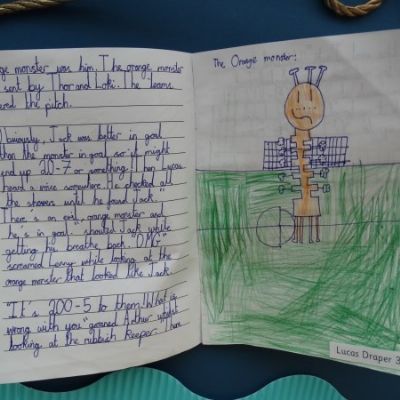 ge monster was him. The orange monster
sent by Thor and Loki. The teams
ered the pitch.
Obviously, Jack was better in goal
than the monster in goal so it might
end up 20-7 or something. Then Lucas
heard a noise somewhere. He checked all
the showers until he found Jack.
There's an evil orange monster and
he's in goal" shouted Jack while
getting his breathe back. "OMG"
screamed Lenny while looking at the
orange monster that looked like Jack.
"It's 200-5 to them! What is
wrong with you" groaned Arthur whilst
looking at the rubbish keeper.
The Orange monster:
Lucas Draper 3